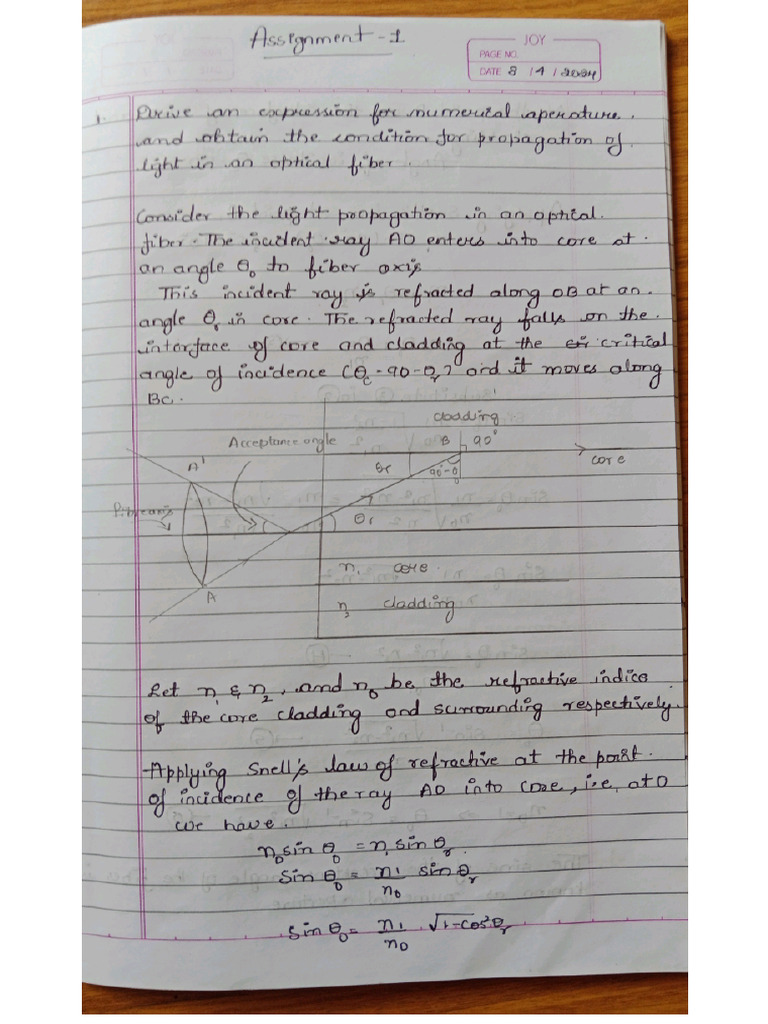 Assignment - 1
JOY
PAGE NO.
DATE 8 / 4 / 2024
1. Derive an expression for numerical aperature.
and obtain the condition for propagation of
light in an optical fiber.
Consider the light propagation in an optical.
fiber. The incident ray AO enters into core at.
an angle θ₀ to fiber axis
This incident ray is refracted along OB at an.
angle θr in core. The refracted ray falls on the.
interface of core and cladding at the critical
angle of incidence (θc - 90 - θr) and it moves along
BC.
cladding
Acceptance angle
B 90°
A'
core
θr
A
n1 core.
cladding
Let n1 & n2, and n0 be the refractive indice
of the core cladding and surrounding respectively.
Applying Snell's law of refractive at the point.
of incidence of the ray AO into core, i.e, at O
we have.
n₀ sin θ₀ = n1 sin θr.
Sin θ₀ = n1/n0 sin θr
Sin θ₀ = n1/n0 √1-cos²θr